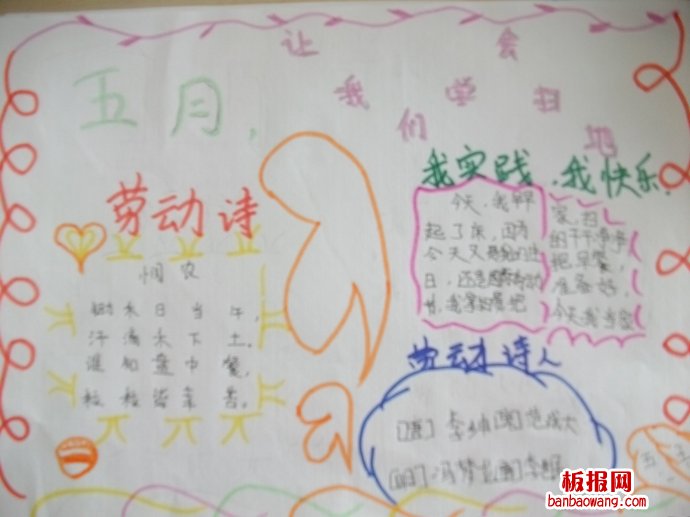 五月,
让我们学会扫地
劳动诗
悯农
锄禾日当午,
汗滴禾下土。
谁知盘中餐,
粒粒皆辛苦。
我实践,我快乐.
今天,我早
起了床,因为
今天又是
日,还是
家,扫
的干干净净
把早餐,
准备好,
今天我当家
劳动诗人
[唐] 李绅 范成大
冯梦龙
五
板报网
banbaowang.com